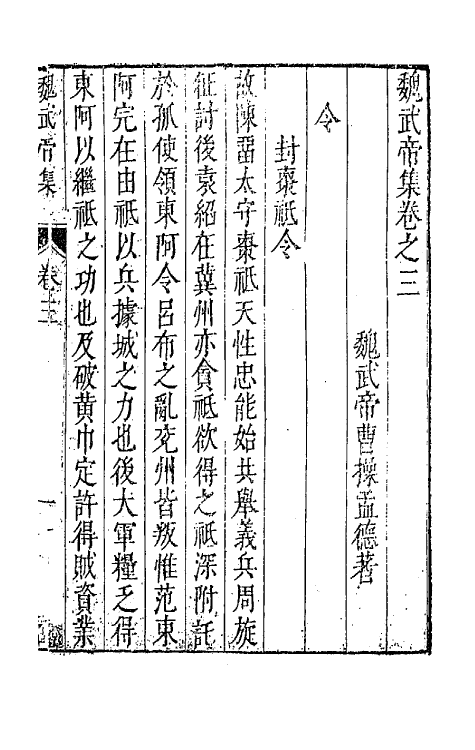 魏武帝集卷之三
魏武帝曹操孟德著
令
封棗祗令
故陳留太守棗祗天性忠能始共舉義兵周旋
征討後袁紹在冀州亦貪祗欲得之祗深附託
於孤使領東阿令呂布之亂兖州皆叛惟范東
阿完在由祗以兵據城之力也後大軍糧乏得
東阿以繼祗之功也及破黃巾定許得賊資業
魏武帝集
卷三
一